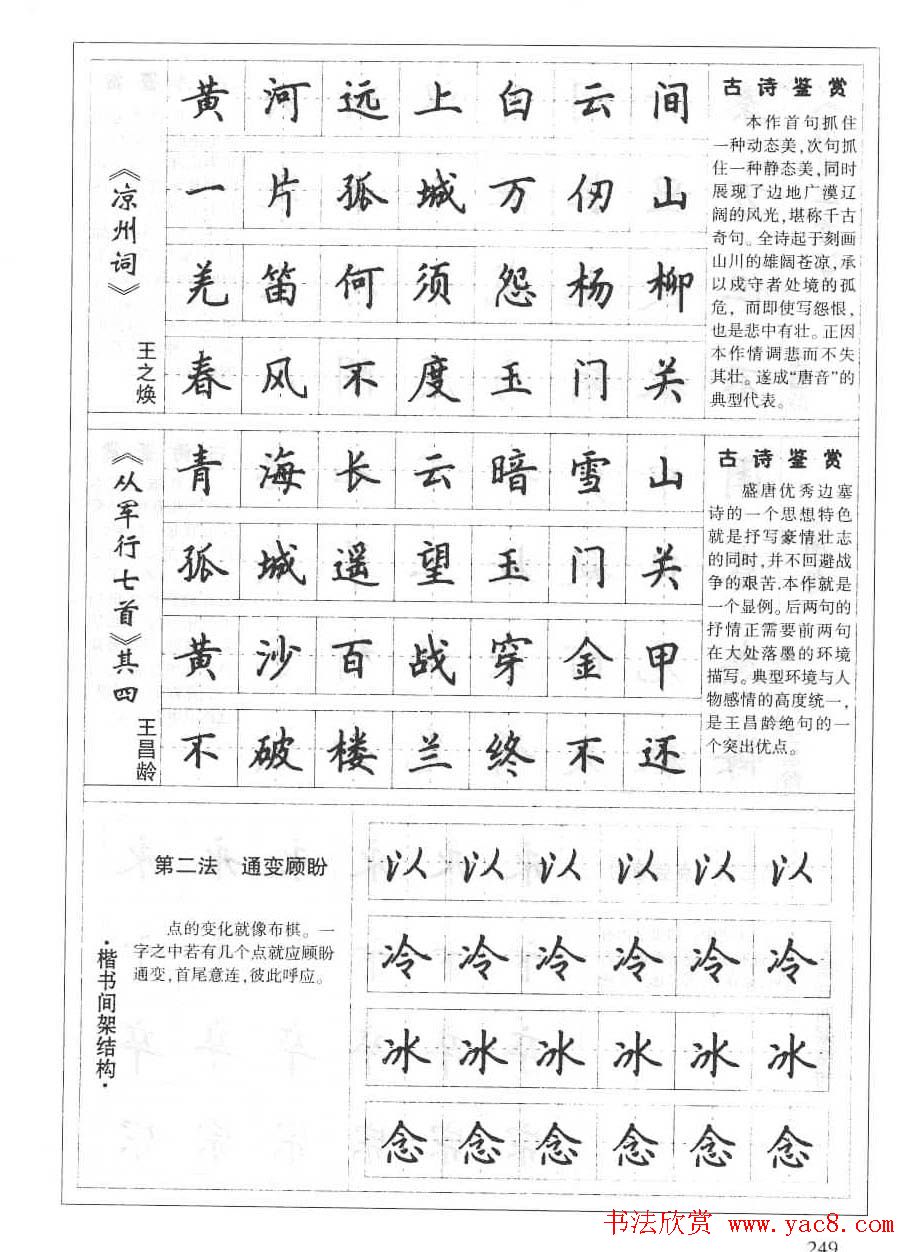 《凉州词》
王之焕
黄河远上白云间
一片孤城万仞山
羌笛何须怨杨柳
春风不度玉门关
古诗鉴赏
本作首句抓住
一种动态美,次句抓
住一种静态美,同时
展现了边地广漠辽
阔的风光,堪称千古
奇句。全诗起于刻画
山川的雄阔苍凉,承
以戍守者处境的孤
危，而即使写怨恨,
也是悲中有壮。正因
本作情调悲而不失
其壮。遂成“唐音”的
典型代表。
《从军行七首》其四
王昌龄
青海长云暗雪山
孤城遥望玉门关
黄沙百战穿金甲
不破楼兰终不还
古诗鉴赏
盛唐优秀边塞
诗的一个思想特色
就是抒写豪情壮志
的同时,并不回避战
争的艰苦.本作就是
一个显例。后两句的
抒情正需要前两句
在大处落墨的环境
描写。典型环境与人
物感情的高度统一,
是王昌龄绝句的一
个突出优点。
·楷书间架结构·
第二法　通变顾盼
点的变化就像布棋。一
字之中若有几个点就应顾盼
通变,首尾意连,彼此呼应。
以以以以以以
冷冷冷冷冷冷
冰冰冰冰冰冰
念念念念念念
书法欣赏 www.yac8.com
249